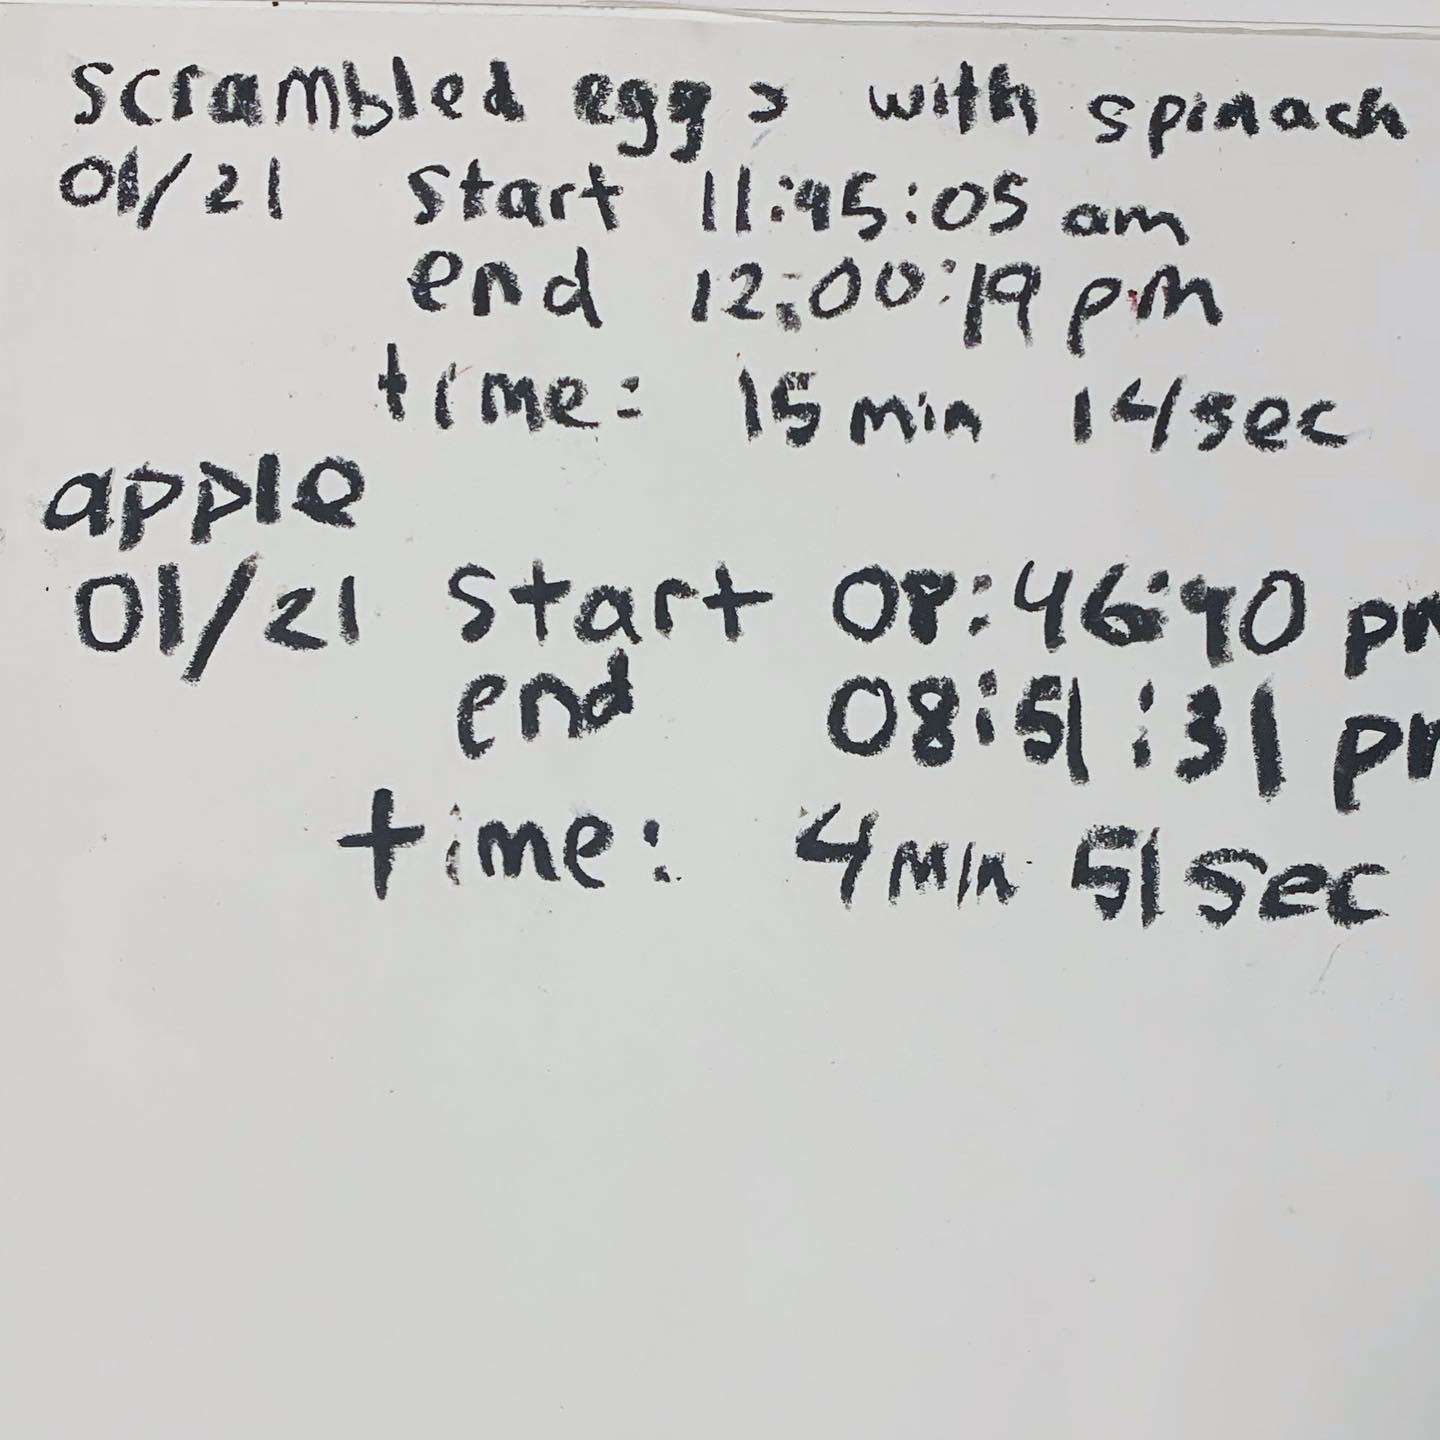 scrambled eggs with spinach
01/21 start 11:45:05 am
end 12:00:19 pm
time: 15 min 14 sec
apple
01/21 start 08:46:40 pm
end 08:51:31 pm
time: 4 min 51 sec